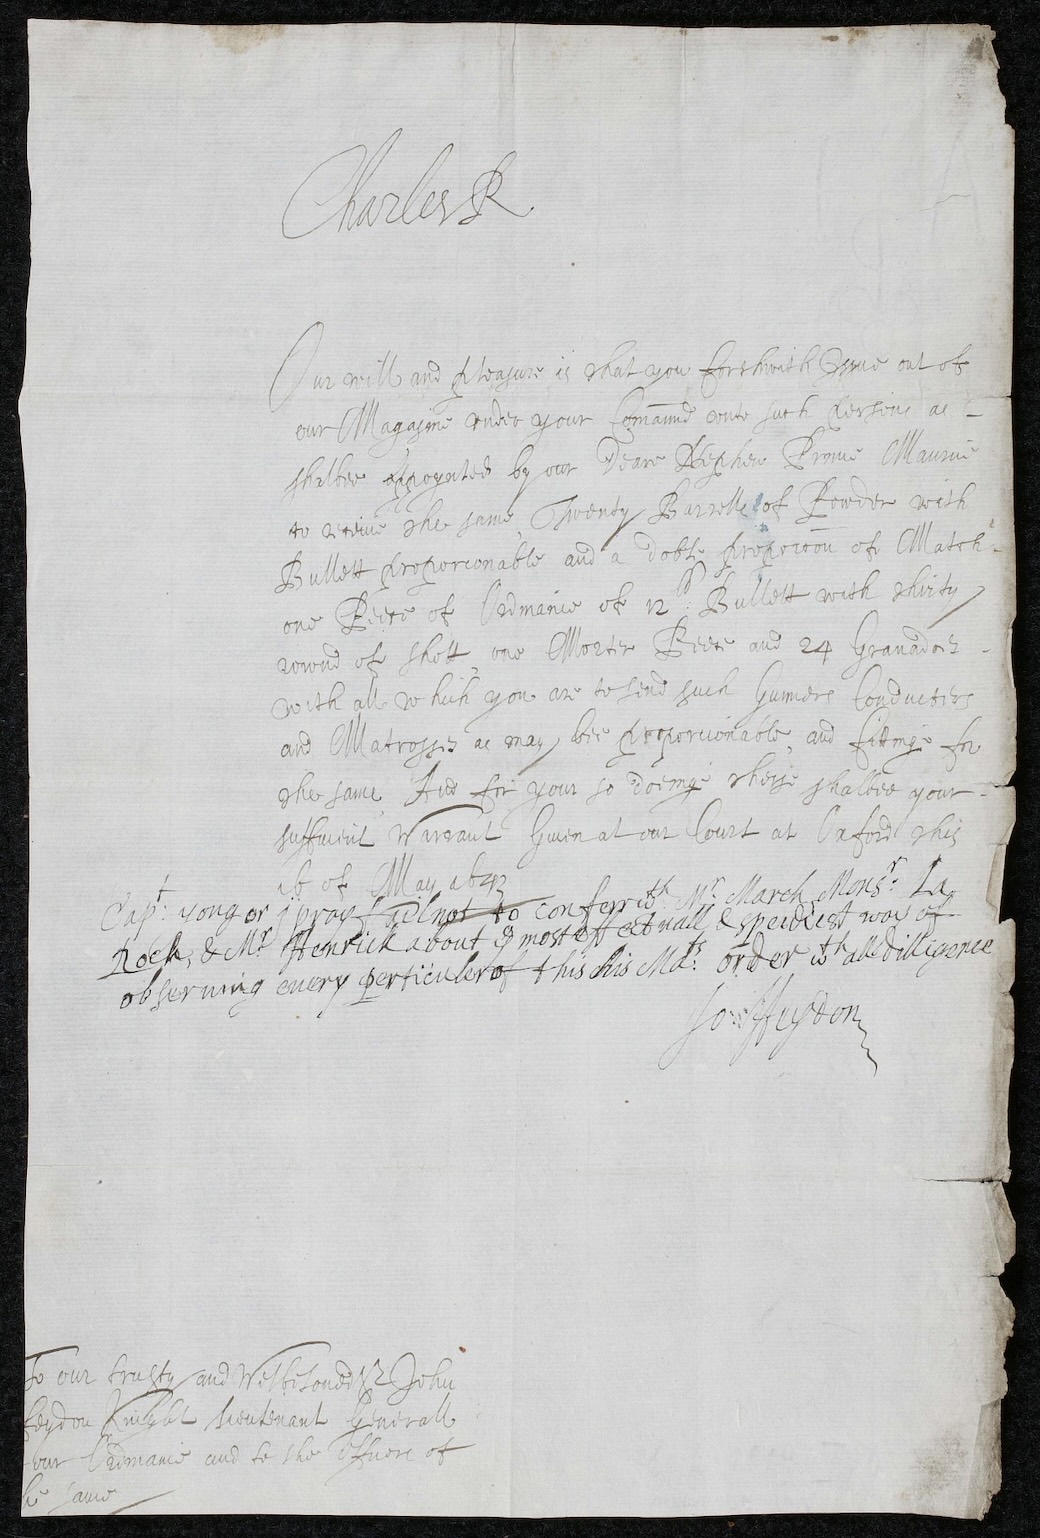 Charles R
Our will and pleasure is that you forthwith Issue out of
our Magazine vnder your Comaund vnto such persons as
shalbee appoynted by our Deare Nephew Prince Maurice
to receive the same, Twenty Barrells of Powder with
Bullett proporcionable and a doble proporcon of Match
one Peece of Ordnance of 12li: Bullett with thirty
round of shott, one Morter Peece and 24 Granadoes
with all which you are to send such Gunners Conducters
and Matrosses as may bee proporcionable and fitting for
the same And for your so doeing theise shalbee your
sufficient Warrant Given at our Court at Oxford this
16 of May 1643
Capt: yong or i pray fail not to conferr wth Mr March, Monsr: La
Roch, & Mr Henrick about ye most effectuall & speediest way of
observing every perticuler of this his Mats: order wth all dilligence
Jo: Heydon
To our trusty and Welbeloved Sr John
Heydon Knight Lieutenant Generall
our Ordnance and to the Officers of
the same